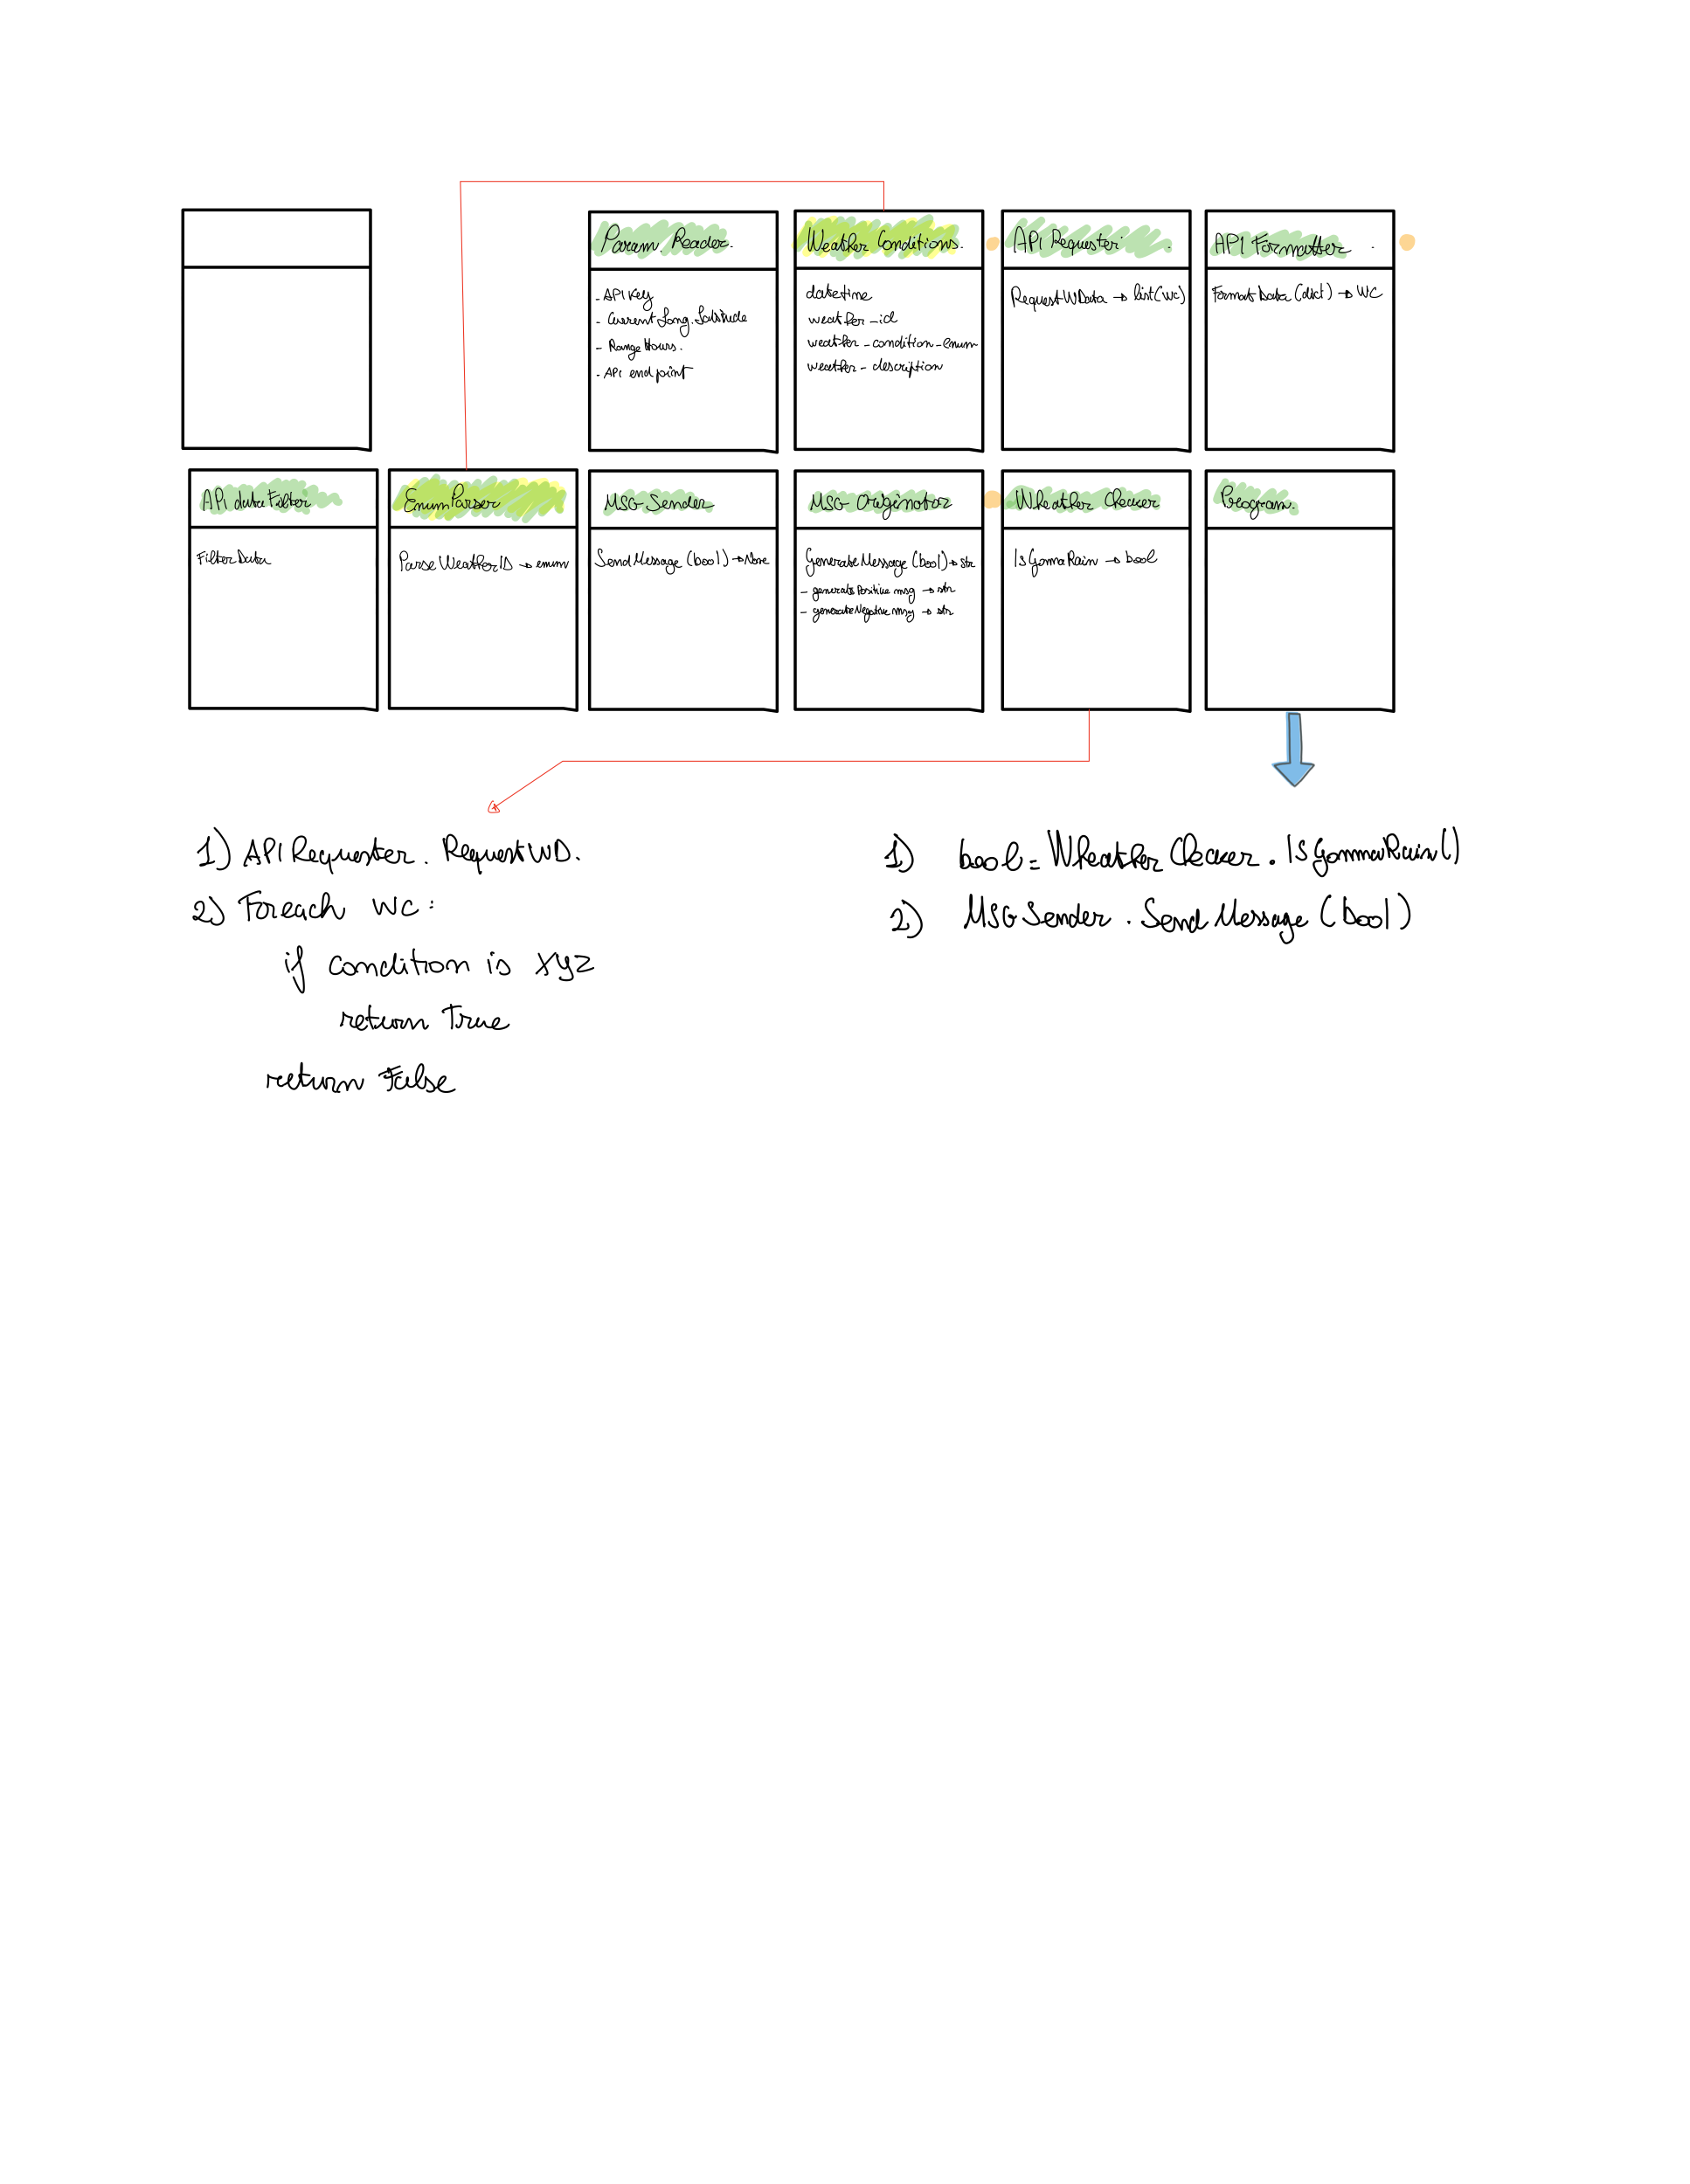 Param. Reader.
- API Key
- Current Long. Latitude
- Range Hours.
- API endpoint
Weather Conditions.
datetime
weather_id
weather_condition_enum
weather_description
API Requester.
RequestWData → list(WC)
API Formatter.
Format Data (dict) → WC
API data Filter
FilterData
EnumParser
ParseWeatherID → enum
MSG Sender
SendMessage (bool) → None
MSG Originator
GenerateMessage (bool) → str
- generatePositive msg → str
- generateNegative msg → str
Wheather Checker
IsGonnaRain → bool
Program.
1) API Requester. RequestWD.
2) Foreach WC:
if condition is xyz
return True
return False
1) bool = Wheather Checker. IsGonnaRain()
2) MSG Sender. Send Message (bool)